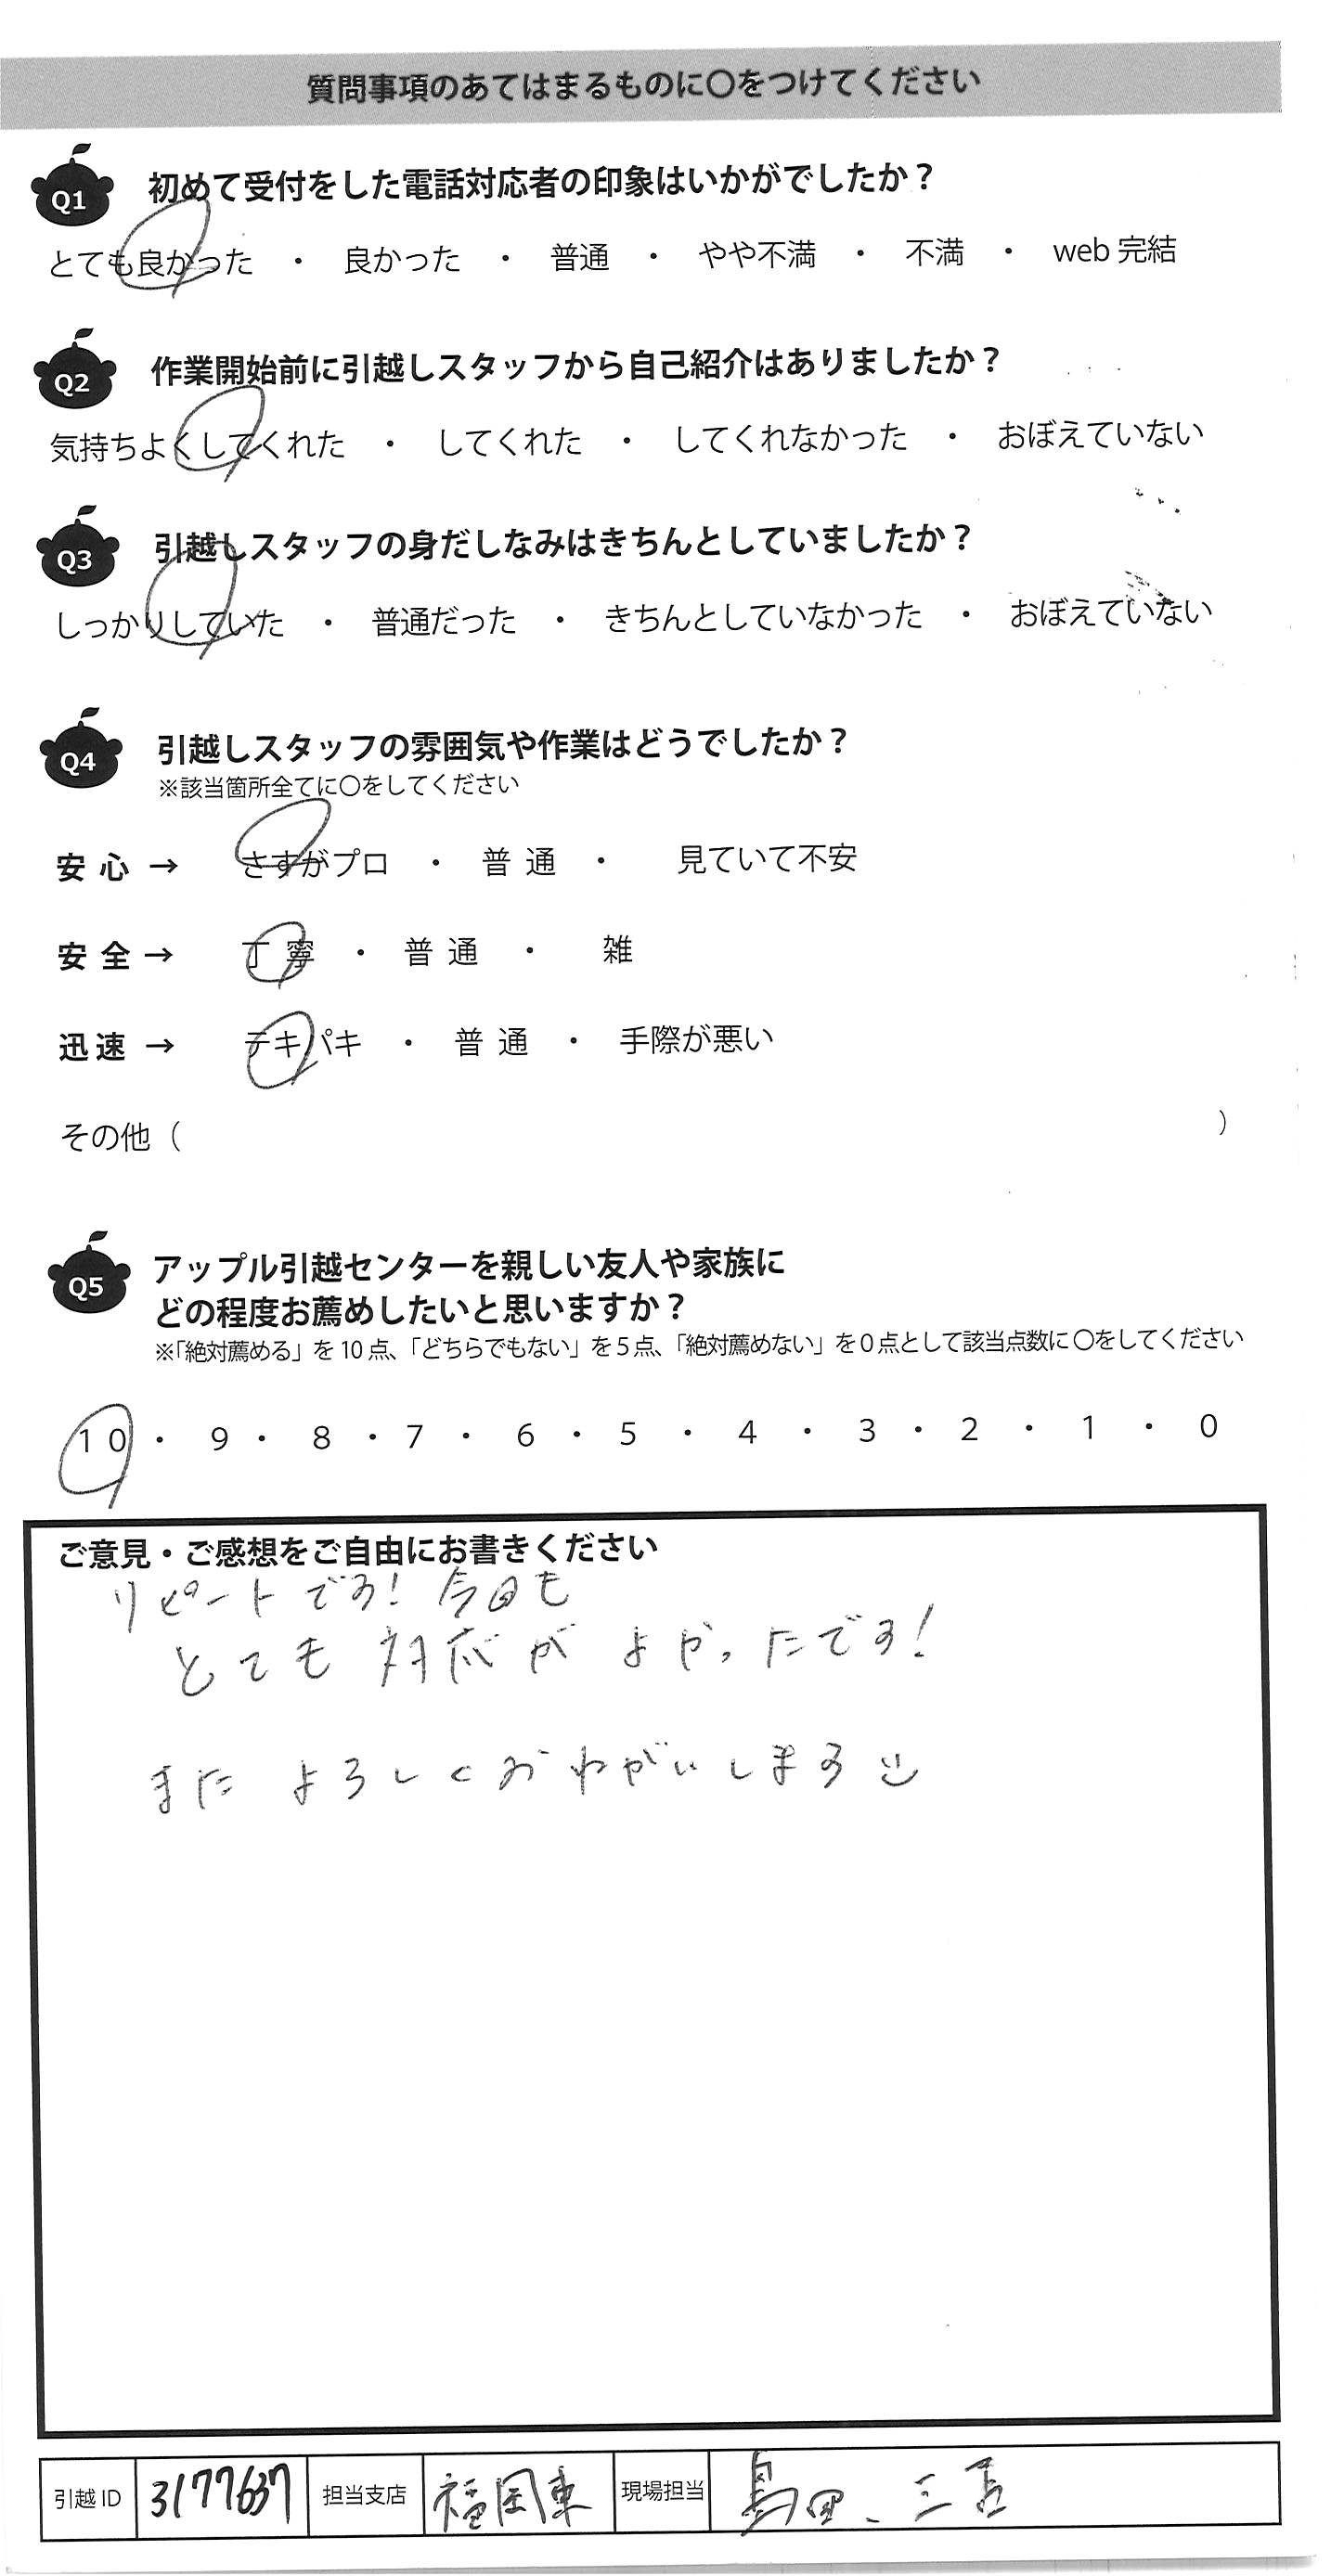 質問事項のあてはまるものに〇をつけてください
Q1 初めて受付をした電話対応者の印象はいかがでしたか？
とても良かった ・ 良かった ・ 普通 ・ やや不満 ・ 不満 ・ web 完結
Q2 作業開始前に引越しスタッフから自己紹介はありましたか？
気持ちよくしてくれた ・ してくれた ・ してくれなかった ・ おぼえていない
Q3 引越しスタッフの身だしなみはきちんとしていましたか？
しっかりしていた ・ 普通だった ・ きちんとしていなかった ・ おぼえていない
Q4 引越しスタッフの雰囲気や作業はどうでしたか？
※該当箇所全てに〇をしてください
安心 → さすがプロ ・ 普通 ・ 見ていて不安
安全 → 丁寧 ・ 普通 ・ 雑
迅速 → テキパキ ・ 普通 ・ 手際が悪い
その他（ ）
Q5 アップル引越センターを親しい友人や家族に
どの程度お薦めしたいと思いますか？
※「絶対薦める」を10点、「どちらでもない」を5点、「絶対薦めない」を0点として該当点数に〇をしてください
10 ・ 9 ・ 8 ・ 7 ・ 6 ・ 5 ・ 4 ・ 3 ・ 2 ・ 1 ・ 0
ご意見・ご感想をご自由にお書きください
リピートです! 今回も
とても対応がよかったです!
またよろしくおねがいします
引越ID 3177637 担当支店 福岡東 現場担当 島田、三